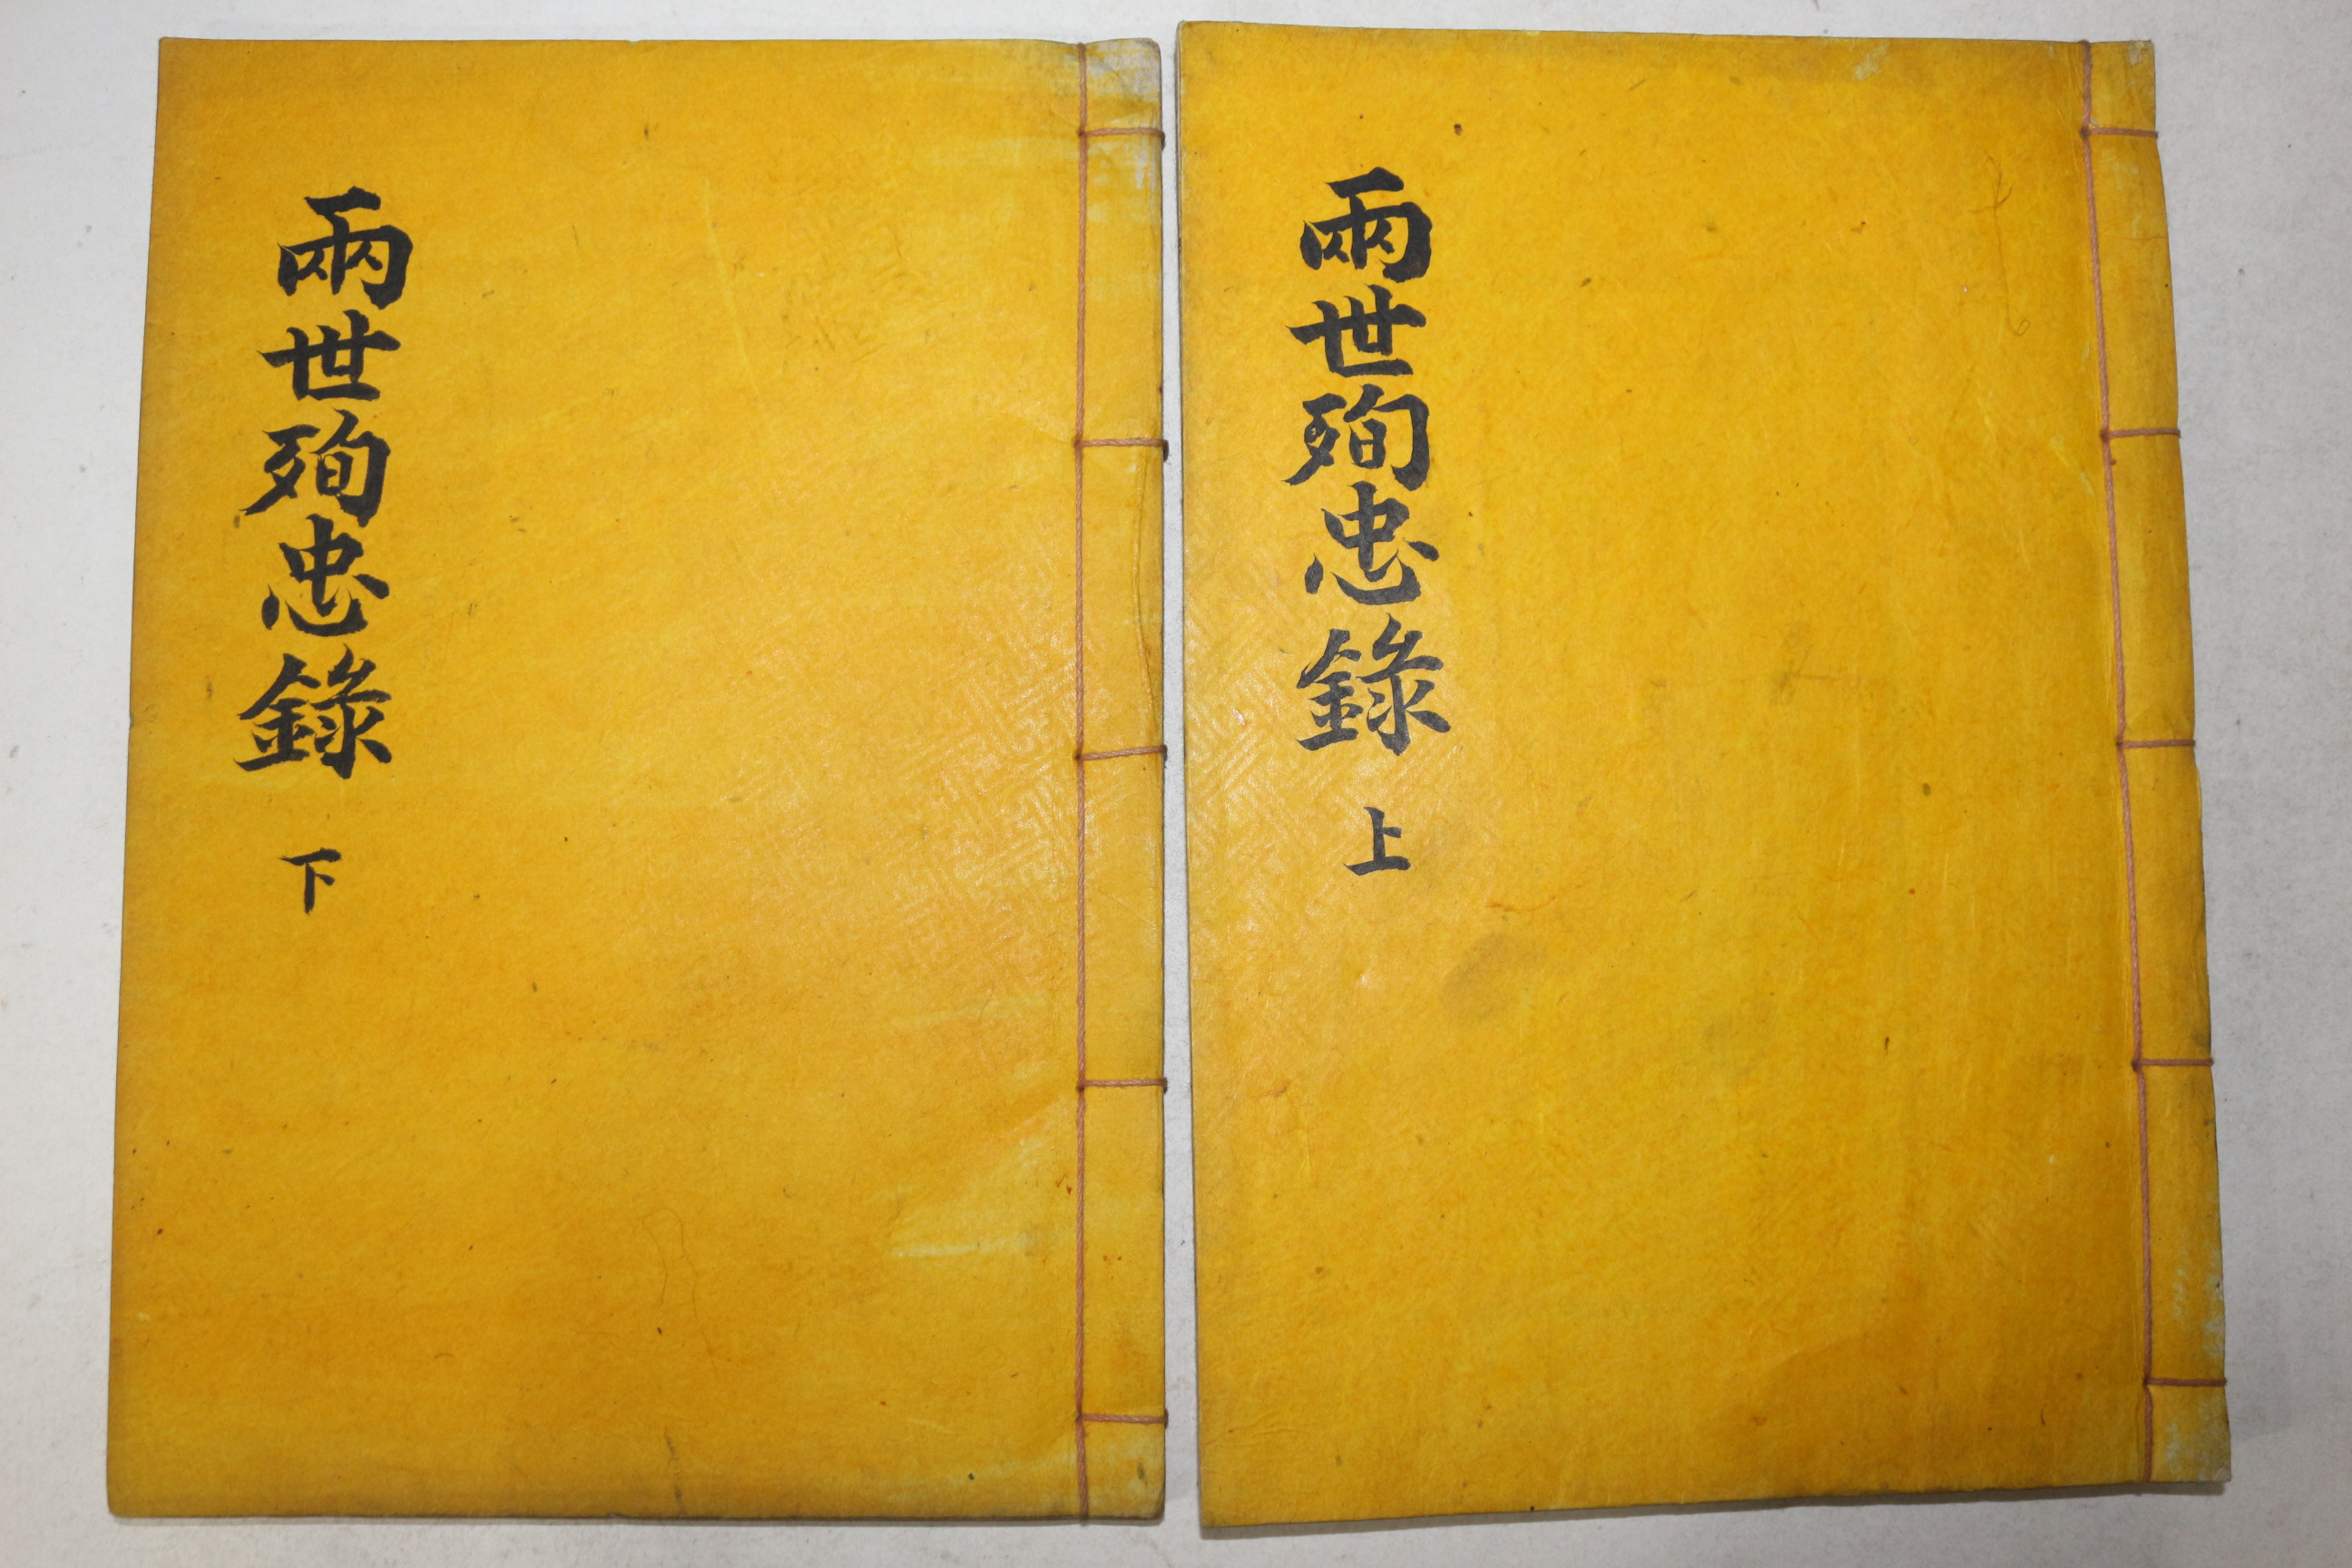 兩世殉忠錄 上
兩世殉忠錄 下